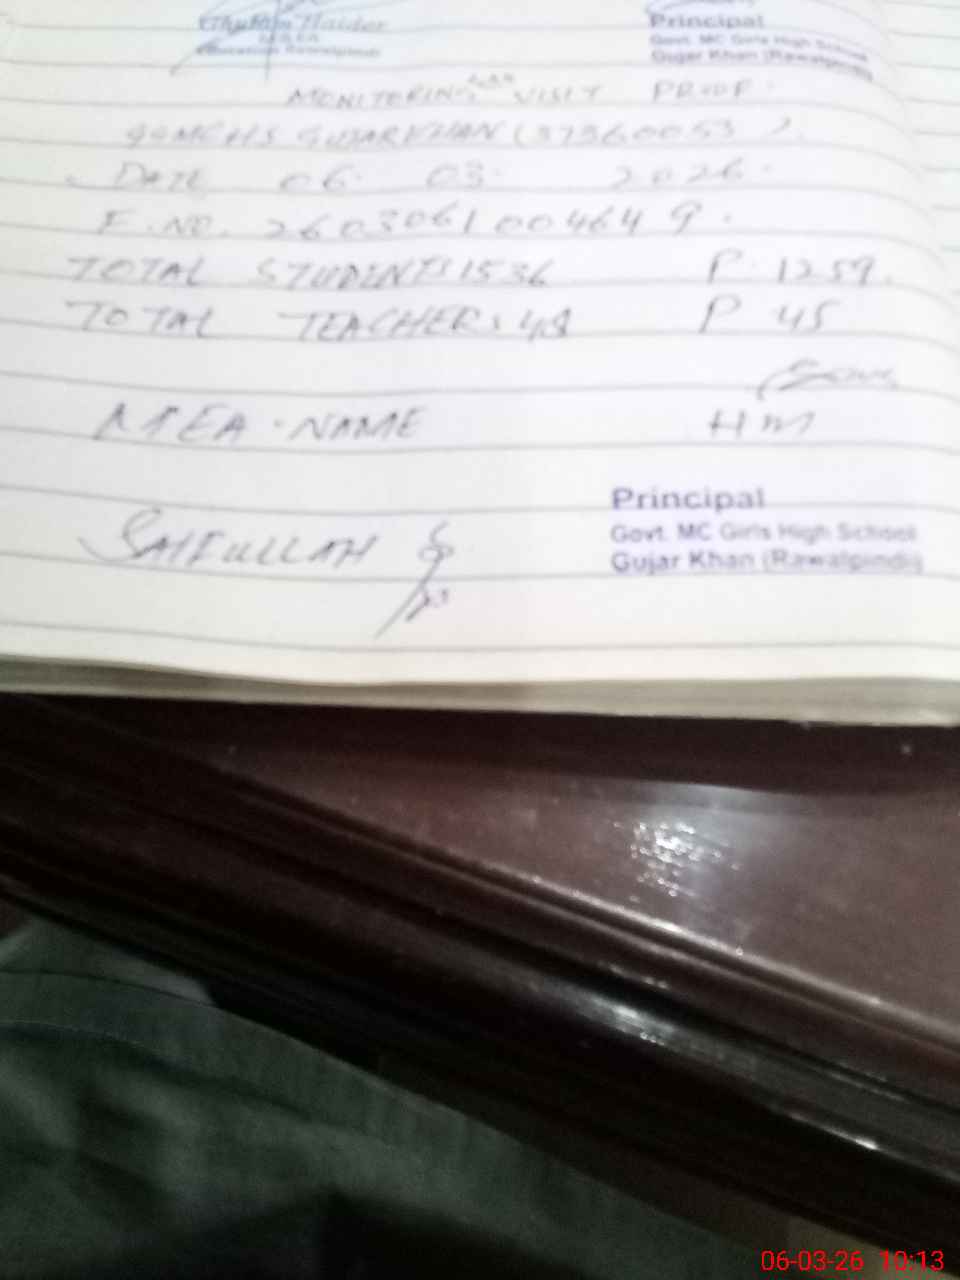 Ghulam Haider
Education Rawalpindi
Principal
Govt. MC Girls High School
Gujar Khan (Rawalpindi)
MONITORING VISIT PROOF.
GGMCHS GUJARKHAN (37360053).
DATE 06. 03. 2026.
F. NO. 260306100464 9.
TOTAL STUDENTS 1536 P. 1259.
TOTAL TEACHERS 48 P 45
MEA. NAME HM
SAIFULLAH
Principal
Govt. MC Girls High School
Gujar Khan (Rawalpindi)
06-03-26 10:13